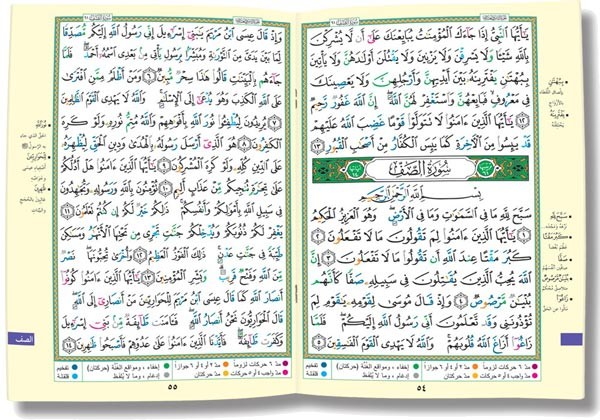 يَٰٓأَيُّهَا ٱلنَّبِيُّ إِذَا جَآءَكَ ٱلْمُؤْمِنَٰتُ يُبَايِعْنَكَ عَلَىٰٓ أَن لَّا يُشْرِكْنَ
بِٱللَّهِ شَيْـًٔا وَلَا يَسْرِقْنَ وَلَا يَزْنِينَ وَلَا يَقْتُلْنَ أَوْلَٰدَهُنَّ وَلَا يَأْتِينَ
بِبُهْتَٰنٍ يَفْتَرِينَهُۥ بَيْنَ أَيْدِيهِنَّ وَأَرْجُلِهِنَّ وَلَا يَعْصِينَكَ
فِى مَعْرُوفٍ فَبَايِعْهُنَّ وَٱسْتَغْفِرْ لَهُنَّ ٱللَّهَ إِنَّ ٱللَّهَ غَفُورٌ رَّحِيمٌ
١٢ يَٰٓأَيُّهَا ٱلَّذِينَ ءَامَنُوا۟ لَا تَتَوَلَّوْا۟ قَوْمًا غَضِبَ ٱللَّهُ عَلَيْهِمْ
قَدْ يَئِسُوا۟ مِنَ ٱلْءَاخِرَةِ كَمَا يَئِسَ ٱلْكُفَّارُ مِنْ أَصْحَٰبِ ٱلْقُبُورِ ١٣
سُورَةُ الصَّفِّ
بِسْمِ ٱللَّهِ ٱلرَّحْمَٰنِ ٱلرَّحِيمِ
سَبَّحَ لِلَّهِ مَا فِى ٱلسَّمَٰوَٰتِ وَمَا فِى ٱلْأَرْضِ وَهُوَ ٱلْعَزِيزُ ٱلْحَكِيمُ
١ يَٰٓأَيُّهَا ٱلَّذِينَ ءَامَنُوا۟ لِمَ تَقُولُونَ مَا لَا تَفْعَلُونَ ٢
كَبُرَ مَقْتًا عِندَ ٱللَّهِ أَن تَقُولُوا۟ مَا لَا تَفْعَلُونَ ٣ إِنَّ
ٱللَّهَ يُحِبُّ ٱلَّذِينَ يُقَٰتِلُونَ فِى سَبِيلِهِۦ صَفًّا كَأَنَّهُم
بُنْيَٰنٌ مَّرْصُوصٌ ٤ وَإِذْ قَالَ مُوسَىٰ لِقَوْمِهِۦ يَٰقَوْمِ لِمَ
تُؤْذُونَنِى وَقَد تَّعْلَمُونَ أَنِّى رَسُولُ ٱللَّهِ إِلَيْكُمْ فَلَمَّا
زَاغُوٓا۟ أَزَاغَ ٱللَّهُ قُلُوبَهُمْ وَٱللَّهُ لَا يَهْدِى ٱلْقَوْمَ ٱلْفَٰسِقِينَ ٥
٥٤
وَإِذْ قَالَ عِيسَى ٱبْنُ مَرْيَمَ يَٰبَنِىٓ إِسْرَٰٓءِيلَ إِنِّى رَسُولُ ٱللَّهِ إِلَيْكُم مُّصَدِّقًا
لِّمَا بَيْنَ يَدَىَّ مِنَ ٱلتَّوْرَىٰةِ وَمُبَشِّرًۢا بِرَسُولٍ يَأْتِى مِنۢ بَعْدِى ٱسْمُهُۥٓ أَحْمَدُ فَلَمَّا
جَآءَهُم بِٱلْبَيِّنَٰتِ قَالُوا۟ هَٰذَا سِحْرٌ مُّبِينٌ ٦ وَمَنْ أَظْلَمُ مِمَّنِ ٱفْتَرَىٰ
عَلَى ٱللَّهِ ٱلْكَذِبَ وَهُوَ يُدْعَىٰٓ إِلَى ٱلْإِسْلَٰمِ وَٱللَّهُ لَا يَهْدِى ٱلْقَوْمَ ٱلظَّٰلِمِينَ
٧ يُرِيدُونَ لِيُطْفِـُٔوا۟ نُورَ ٱللَّهِ بِأَفْوَٰهِهِمْ وَٱللَّهُ مُتِمُّ نُورِهِۦ وَلَوْ كَرِهَ
ٱلْكَٰفِرُونَ ٨ هُوَ ٱلَّذِىٓ أَرْسَلَ رَسُولَهُۥ بِٱلْهُدَىٰ وَدِينِ ٱلْحَقِّ لِيُظْهِرَهُۥ
عَلَى ٱلدِّينِ كُلِّهِۦ وَلَوْ كَرِهَ ٱلْمُشْرِكُونَ ٩ يَٰٓأَيُّهَا ٱلَّذِينَ ءَامَنُوا۟ هَلْ أَدُلُّكُمْ
عَلَىٰ تِجَٰرَةٍ تُنجِيكُم مِّنْ عَذَابٍ أَلِيمٍ ١٠ تُؤْمِنُونَ بِٱللَّهِ وَرَسُولِهِۦ وَتُجَٰهِدُونَ
فِى سَبِيلِ ٱللَّهِ بِأَمْوَٰلِكُمْ وَأَنفُسِكُمْ ذَٰلِكُمْ خَيْرٌ لَّكُمْ إِن كُنتُمْ تَعْلَمُونَ ١١
يَغْفِرْ لَكُمْ ذُنُوبَكُمْ وَيُدْخِلْكُمْ جَنَّٰتٍ تَجْرِى مِن تَحْتِهَا ٱلْأَنْهَٰرُ وَمَسَٰكِنَ
طَيِّبَةً فِى جَنَّٰتِ عَدْنٍ ذَٰلِكَ ٱلْفَوْزُ ٱلْعَظِيمُ ١٢ وَأُخْرَىٰ تُحِبُّونَهَا نَصْرٌ
مِّنَ ٱللَّهِ وَفَتْحٌ قَرِيبٌ وَبَشِّرِ ٱلْمُؤْمِنِينَ ١٣ يَٰٓأَيُّهَا ٱلَّذِينَ ءَامَنُوا۟ كُونُوٓا۟
أَنصَارَ ٱللَّهِ كَمَا قَالَ عِيسَى ٱبْنُ مَرْيَمَ لِلْحَوَارِيِّـۧنَ مَنْ أَنصَارِىٓ إِلَى ٱللَّهِ
قَالَ ٱلْحَوَارِيُّونَ نَحْنُ أَنصَارُ ٱللَّهِ فَـَٔامَنَت طَّآئِفَةٌ مِّنۢ بَنِىٓ إِسْرَٰٓءِيلَ
وَكَفَرَت طَّآئِفَةٌ فَأَيَّدْنَا ٱلَّذِينَ ءَامَنُوا۟ عَلَىٰ عَدُوِّهِمْ فَأَصْبَحُوا۟ ظَٰهِرِينَ ١٤
الصف
٥٥